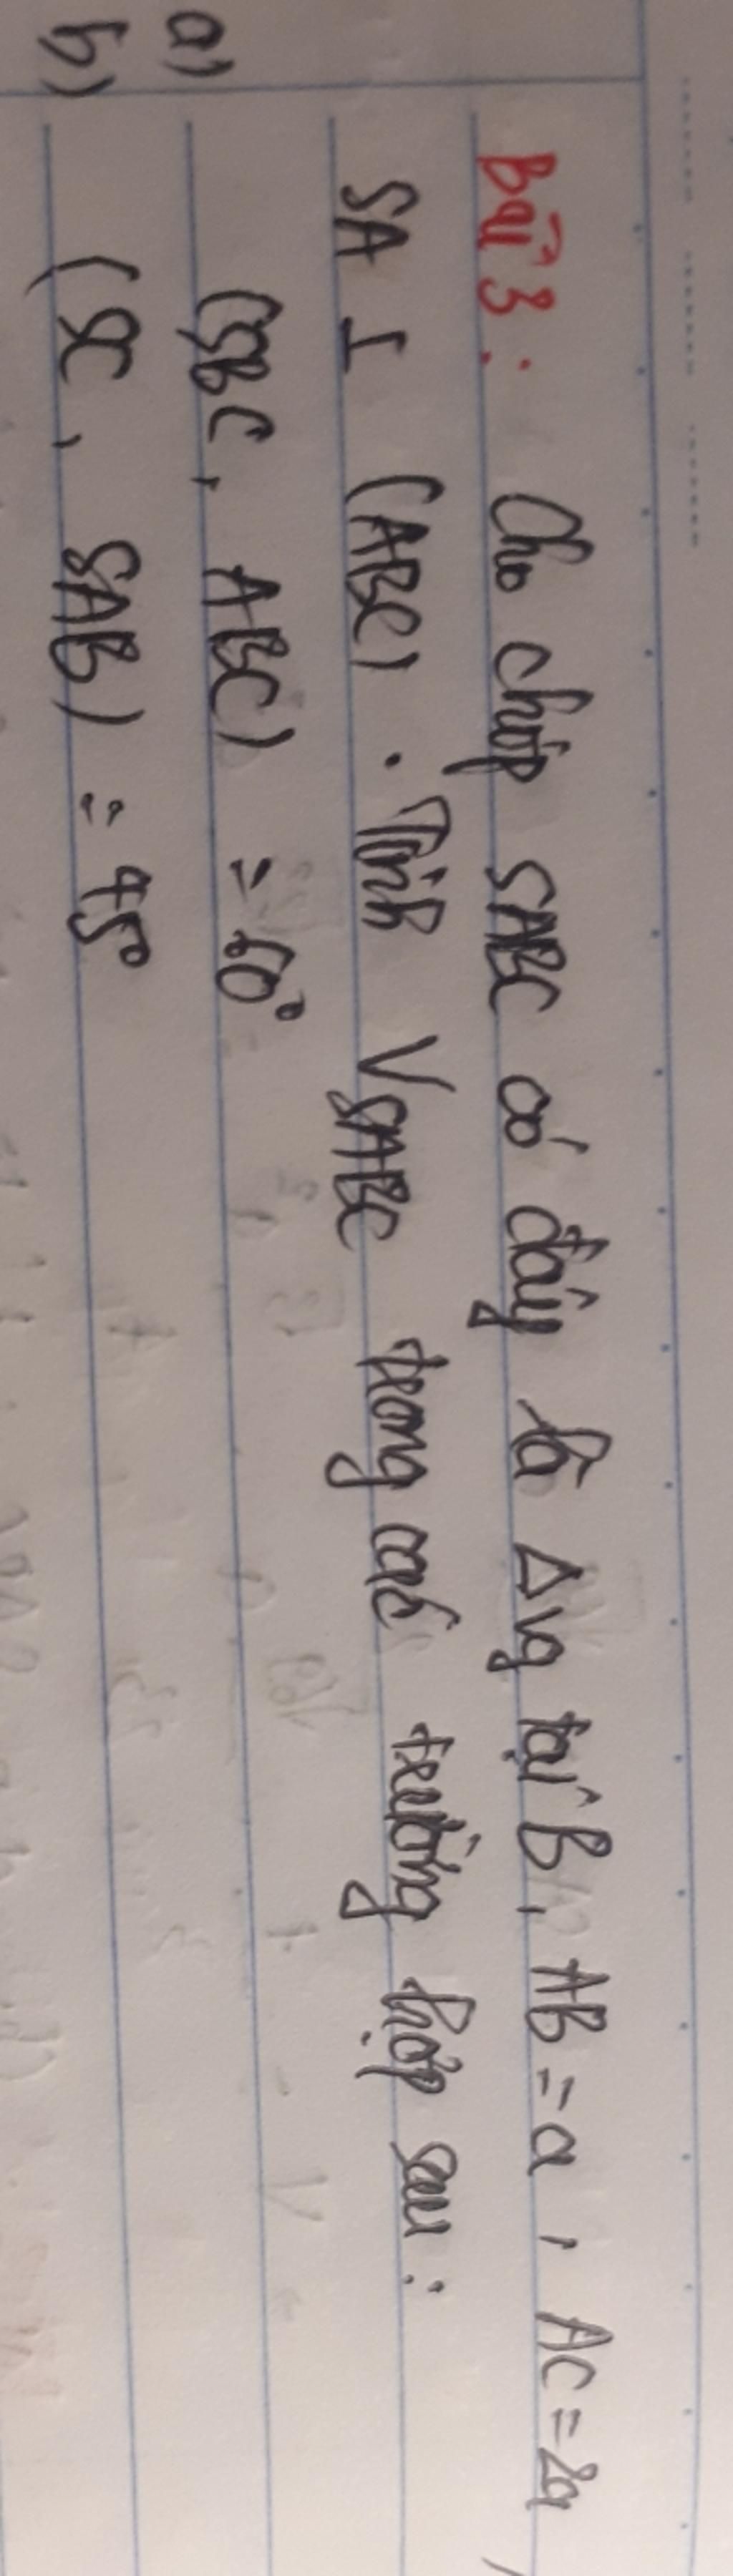 Bài 3: Cho chóp SABC có đáy là Δvg tại B, AB = a, AC = 2a,
SA ⊥ (ABC). Tính V SABC trong các trường hợp sau:
a) (SBC, ABC) = 60°
b) (SC, SAB) = 45°